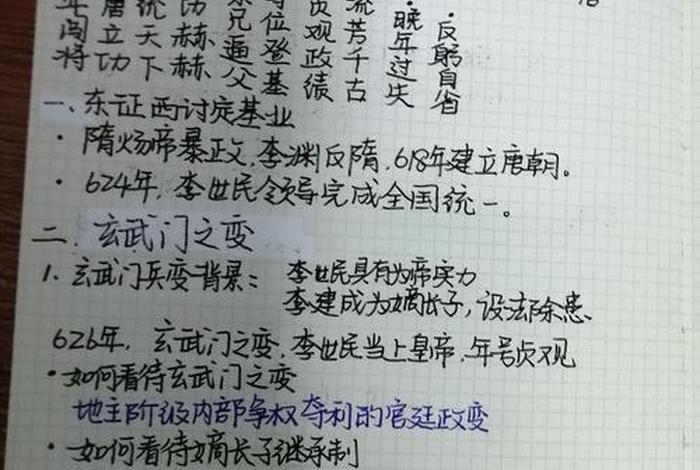 闯将
唐立功
统天下
功赫赫
兄逼父
位登基
贞观政绩
流芳千古
·晚年过失
·反躬自省
一、东征西讨定基业
· 隋炀帝暴政,李渊反隋,618年建立唐朝。
· 624年,李世民领导完成全国统一。
二、玄武门之变
1. 玄武门兵变背景: 李世民具有为帝实力
李建成为嫡长子,设法除患、
626年,玄武门之变,李世民当上皇帝,年号贞观
·如何看待玄武门之变
地主阶级内部争权夺利的宫廷政变
·如何看待嫡长子继承制